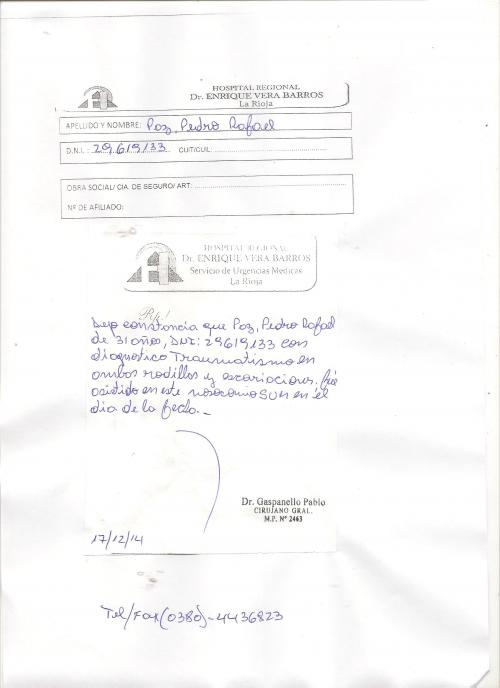 HOSPITAL REGIONAL
Dr. ENRIQUE VERA BARROS
La Rioja
APELLIDO Y NOMBRE: Poz, Pedro Rafael
D.N.I.: 29.619.133 CUIT/CUIL:
OBRA SOCIAL/ CIA. DE SEGURO/ ART:
Nº DE AFILIADO:
HOSPITAL REGIONAL
Dr. ENRIQUE VERA BARROS
Servicio de Urgencias Medicas
La Rioja
Rp/
Dejo constancia que Poz, Pedro Rafael
de 31 años, DNI: 29619133 con
diagnostico Traumatismo en
ambos rodillas y escoriaciones, fue
asistido en este nosocomio SUM en el
dia de la fecha.-
Dr. Gaspanello Pablo
CIRUJANO GRAL.
M.P. Nº 2463
17/12/14
Tel/Fax (0380)-4436823